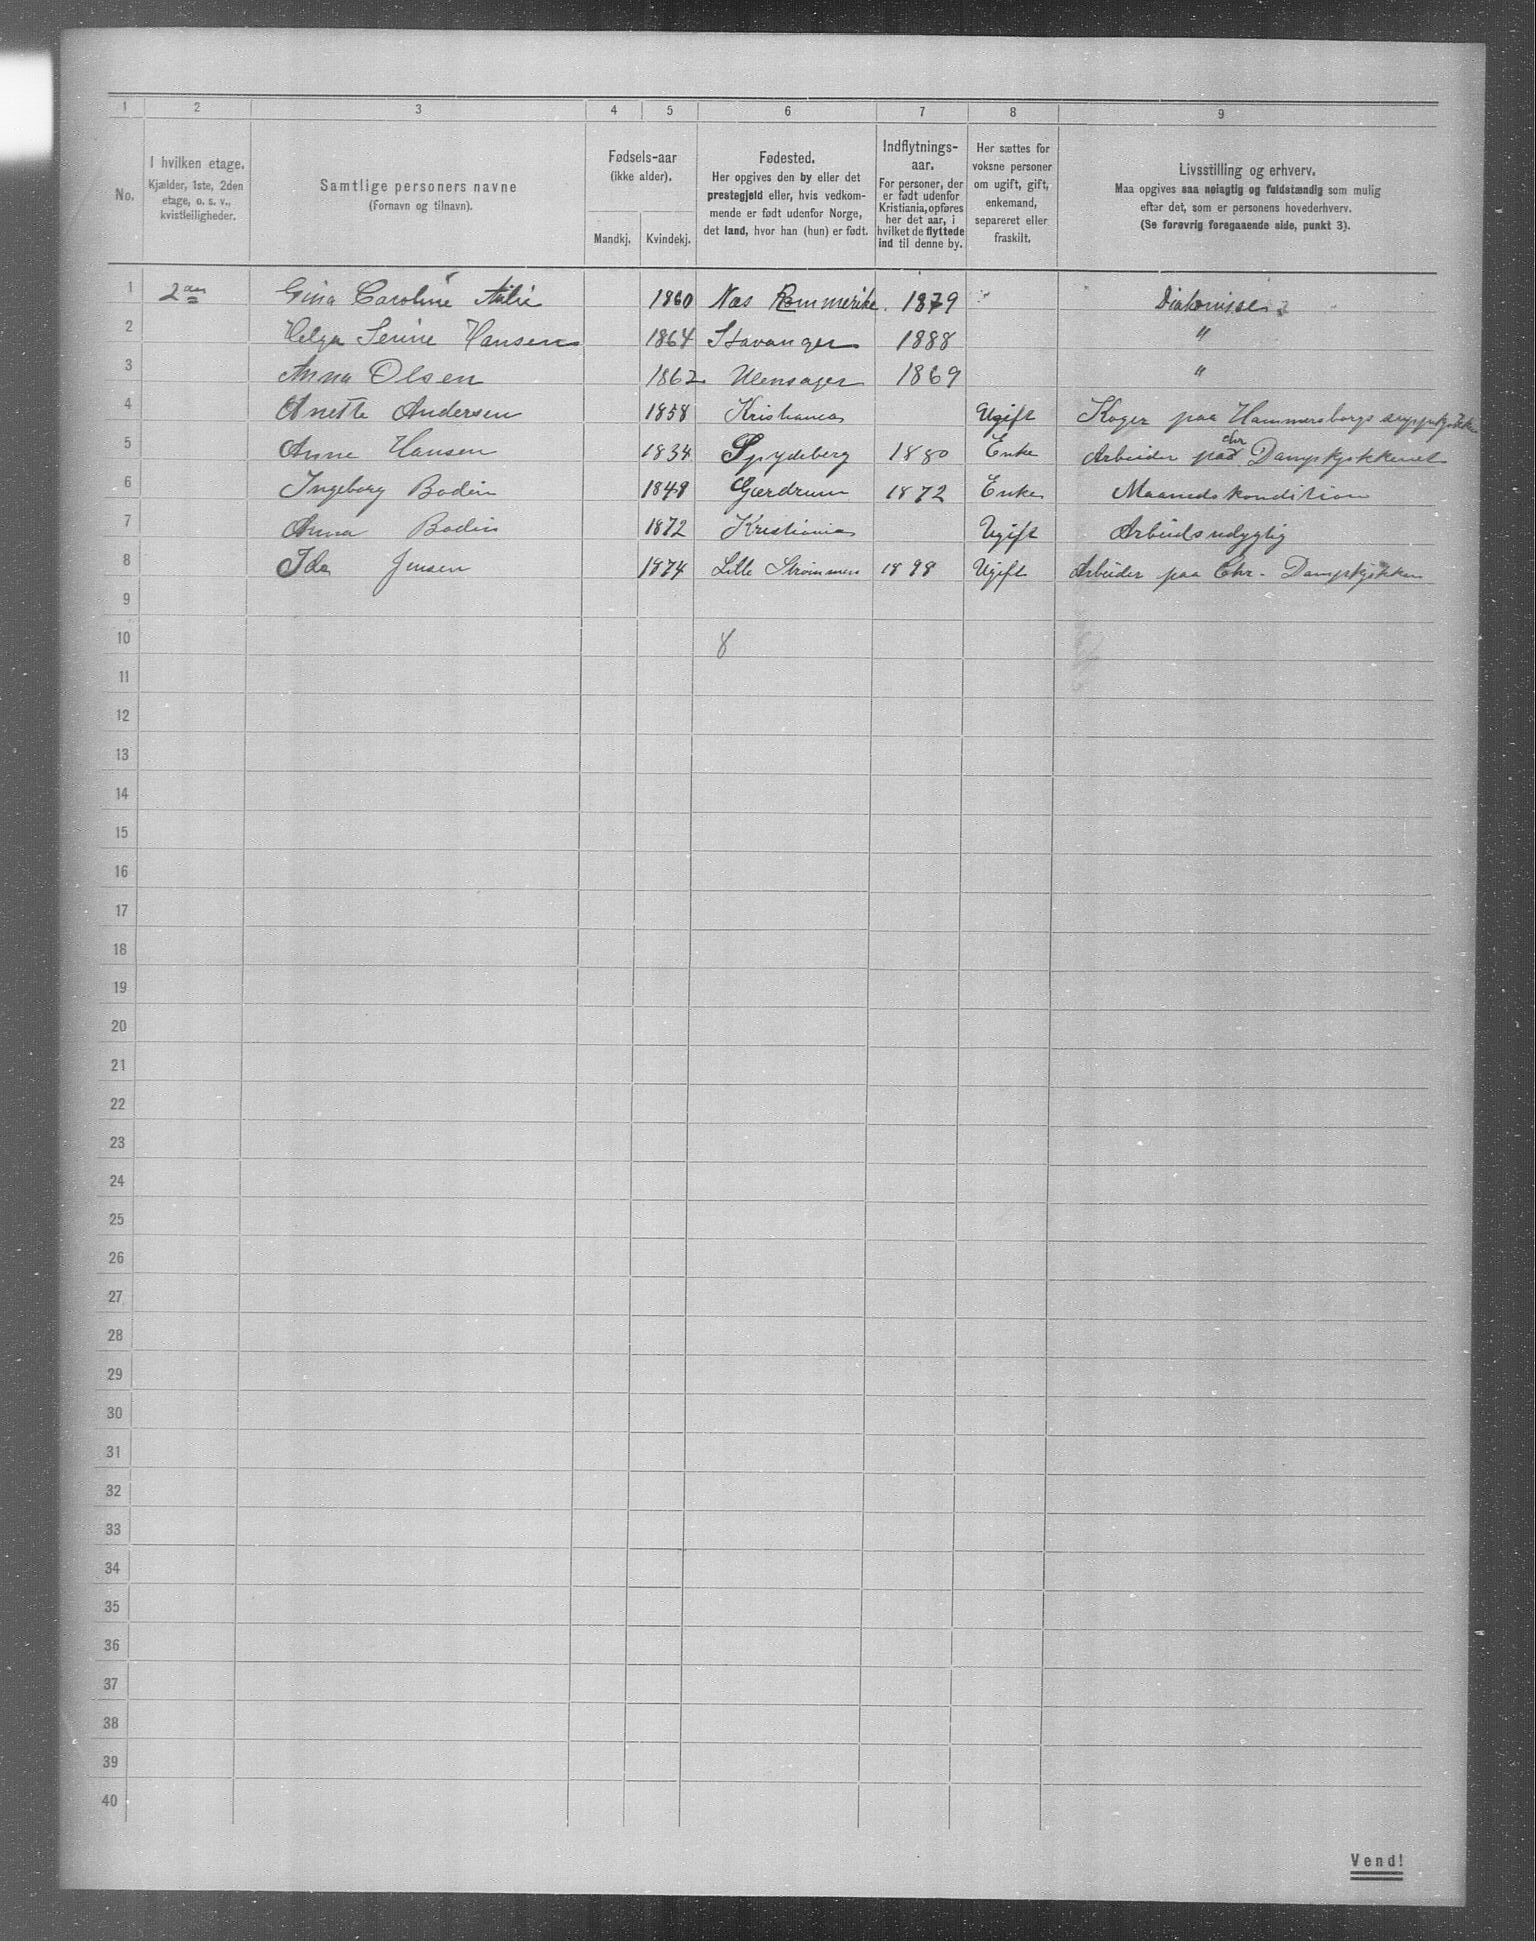 1 2 3 4 5 6 7 8 9
No.
I hvilken etage.
Kjælder, 1ste, 2den
etage, o. s. v.,
kvistleiligheder.
Samtlige personers navne
(Fornavn og tilnavn).
Fødsels-aar
(ikke alder).
Mandkj. Kvindekj.
Fødested.
Her opgives den by eller det
prestegjeld eller, hvis vedkom-
mende er født udenfor Norge,
det land, hvor han (hun) er født.
Indflytnings-
aar.
For personer, der
er født udenfor
Kristiania, opføres
her det aar, i
hvilket de flyttede
ind til denne by.
Her sættes for
voksne personer
om ugift, gift,
enkemand,
separeret eller
fraskilt.
Livsstilling og erhverv.
Maa opgives saa nøiagtig og fuldstændig som mulig
efter det, som er personens hovederhverv.
(Se forøvrig foregaaende side, punkt 3).
1 2den Gina Caroline 1860 Næs Rommerike. 1879 Diakonisse
2 Helga Serine Hansen 1864 Stavanger 1888 "
3 Anna Olsen 1862 Ulensager 1869 "
4 Anette Andersen 1858 Kristiania Ugift Koger paa Hammersborgs
5 Anne Hansen 1834 Spydeberg 1880 Enke Arbeider paa Chr Dampkjøkkenet
6 Ingeborg Bodin 1848 Gjerdrum 1872 Enke Maanedskondition
7 Anna Bodin 1872 Kristiania Ugift Arbeidsudygtig
8 Ida Jensen 1874 Lille Strømmen 1898 Ugift Arbeider paa Chr. Dampkjøkken
9
10 8
11
12
13
14
15
16
17
18
19
20
21
22
23
24
25
26
27
28
29
30
31
32
33
34
35
36
37
38
39
40
Vend!